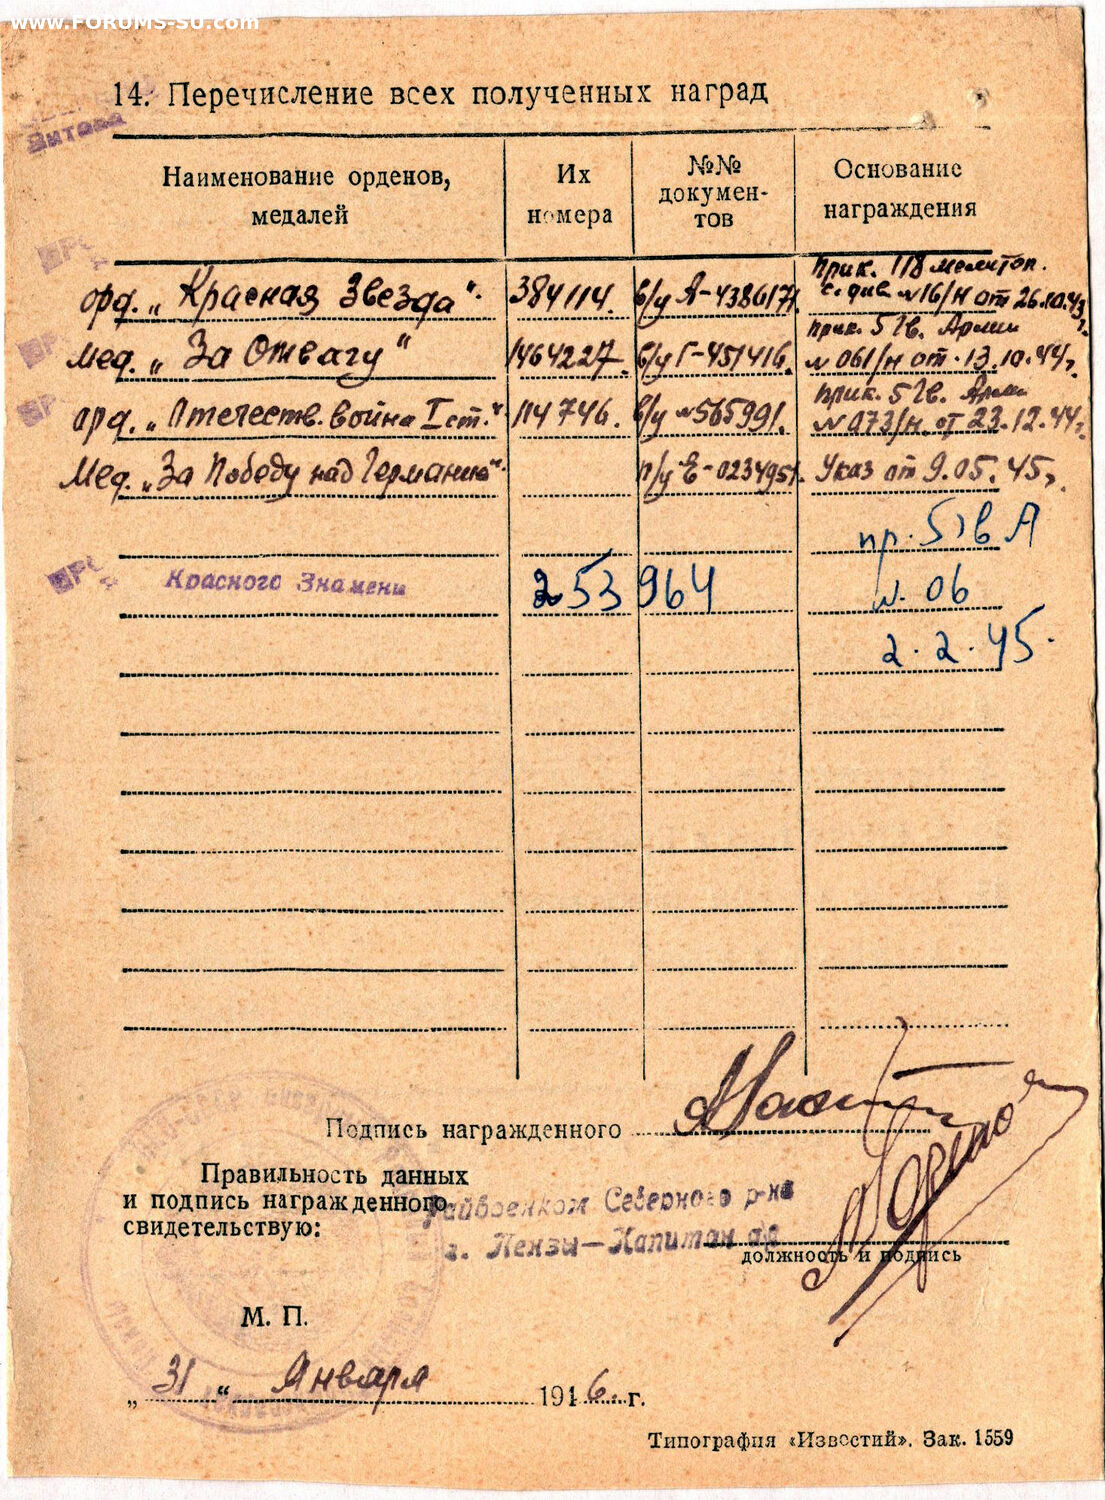 www.FORUMS-SU.com
14. Перечисление всех полученных наград
Витова
Наименование орденов, медалей
Их номера
№№ докумен-тов
Основание награждения
орд. „Красная Звезда“. 384114. в/у А-438617. прик. 118 мелитоп. с. див. №16/н от 26.10.43 г.
мед. „За Отвагу“ 1464227. б/у Г-451416. прик. 5 Гв. Армии №061/н от 13.10.44 г.
орд. „Отечеств. война I ст.“ 114746. в/у №565991. прик. 5 Гв. Арми №073/н. от 23.12.44 г.
Мед. „За Победу над Германию“. п/у Е-0234951. Указ от 9.05.45 г.
пр. 5 гв А
Красного Знамени 253964 №. 06
2.2.45.
Подпись награжденного
Правильность данных
и подпись награжденного
свидетельствую:
Райвоенком Северного р-на
г. Пензы—Капитан а/с
должность и подпись
М. П.
„ 31 “ Января 1946. г.
Типография «Известий». Зак. 1559